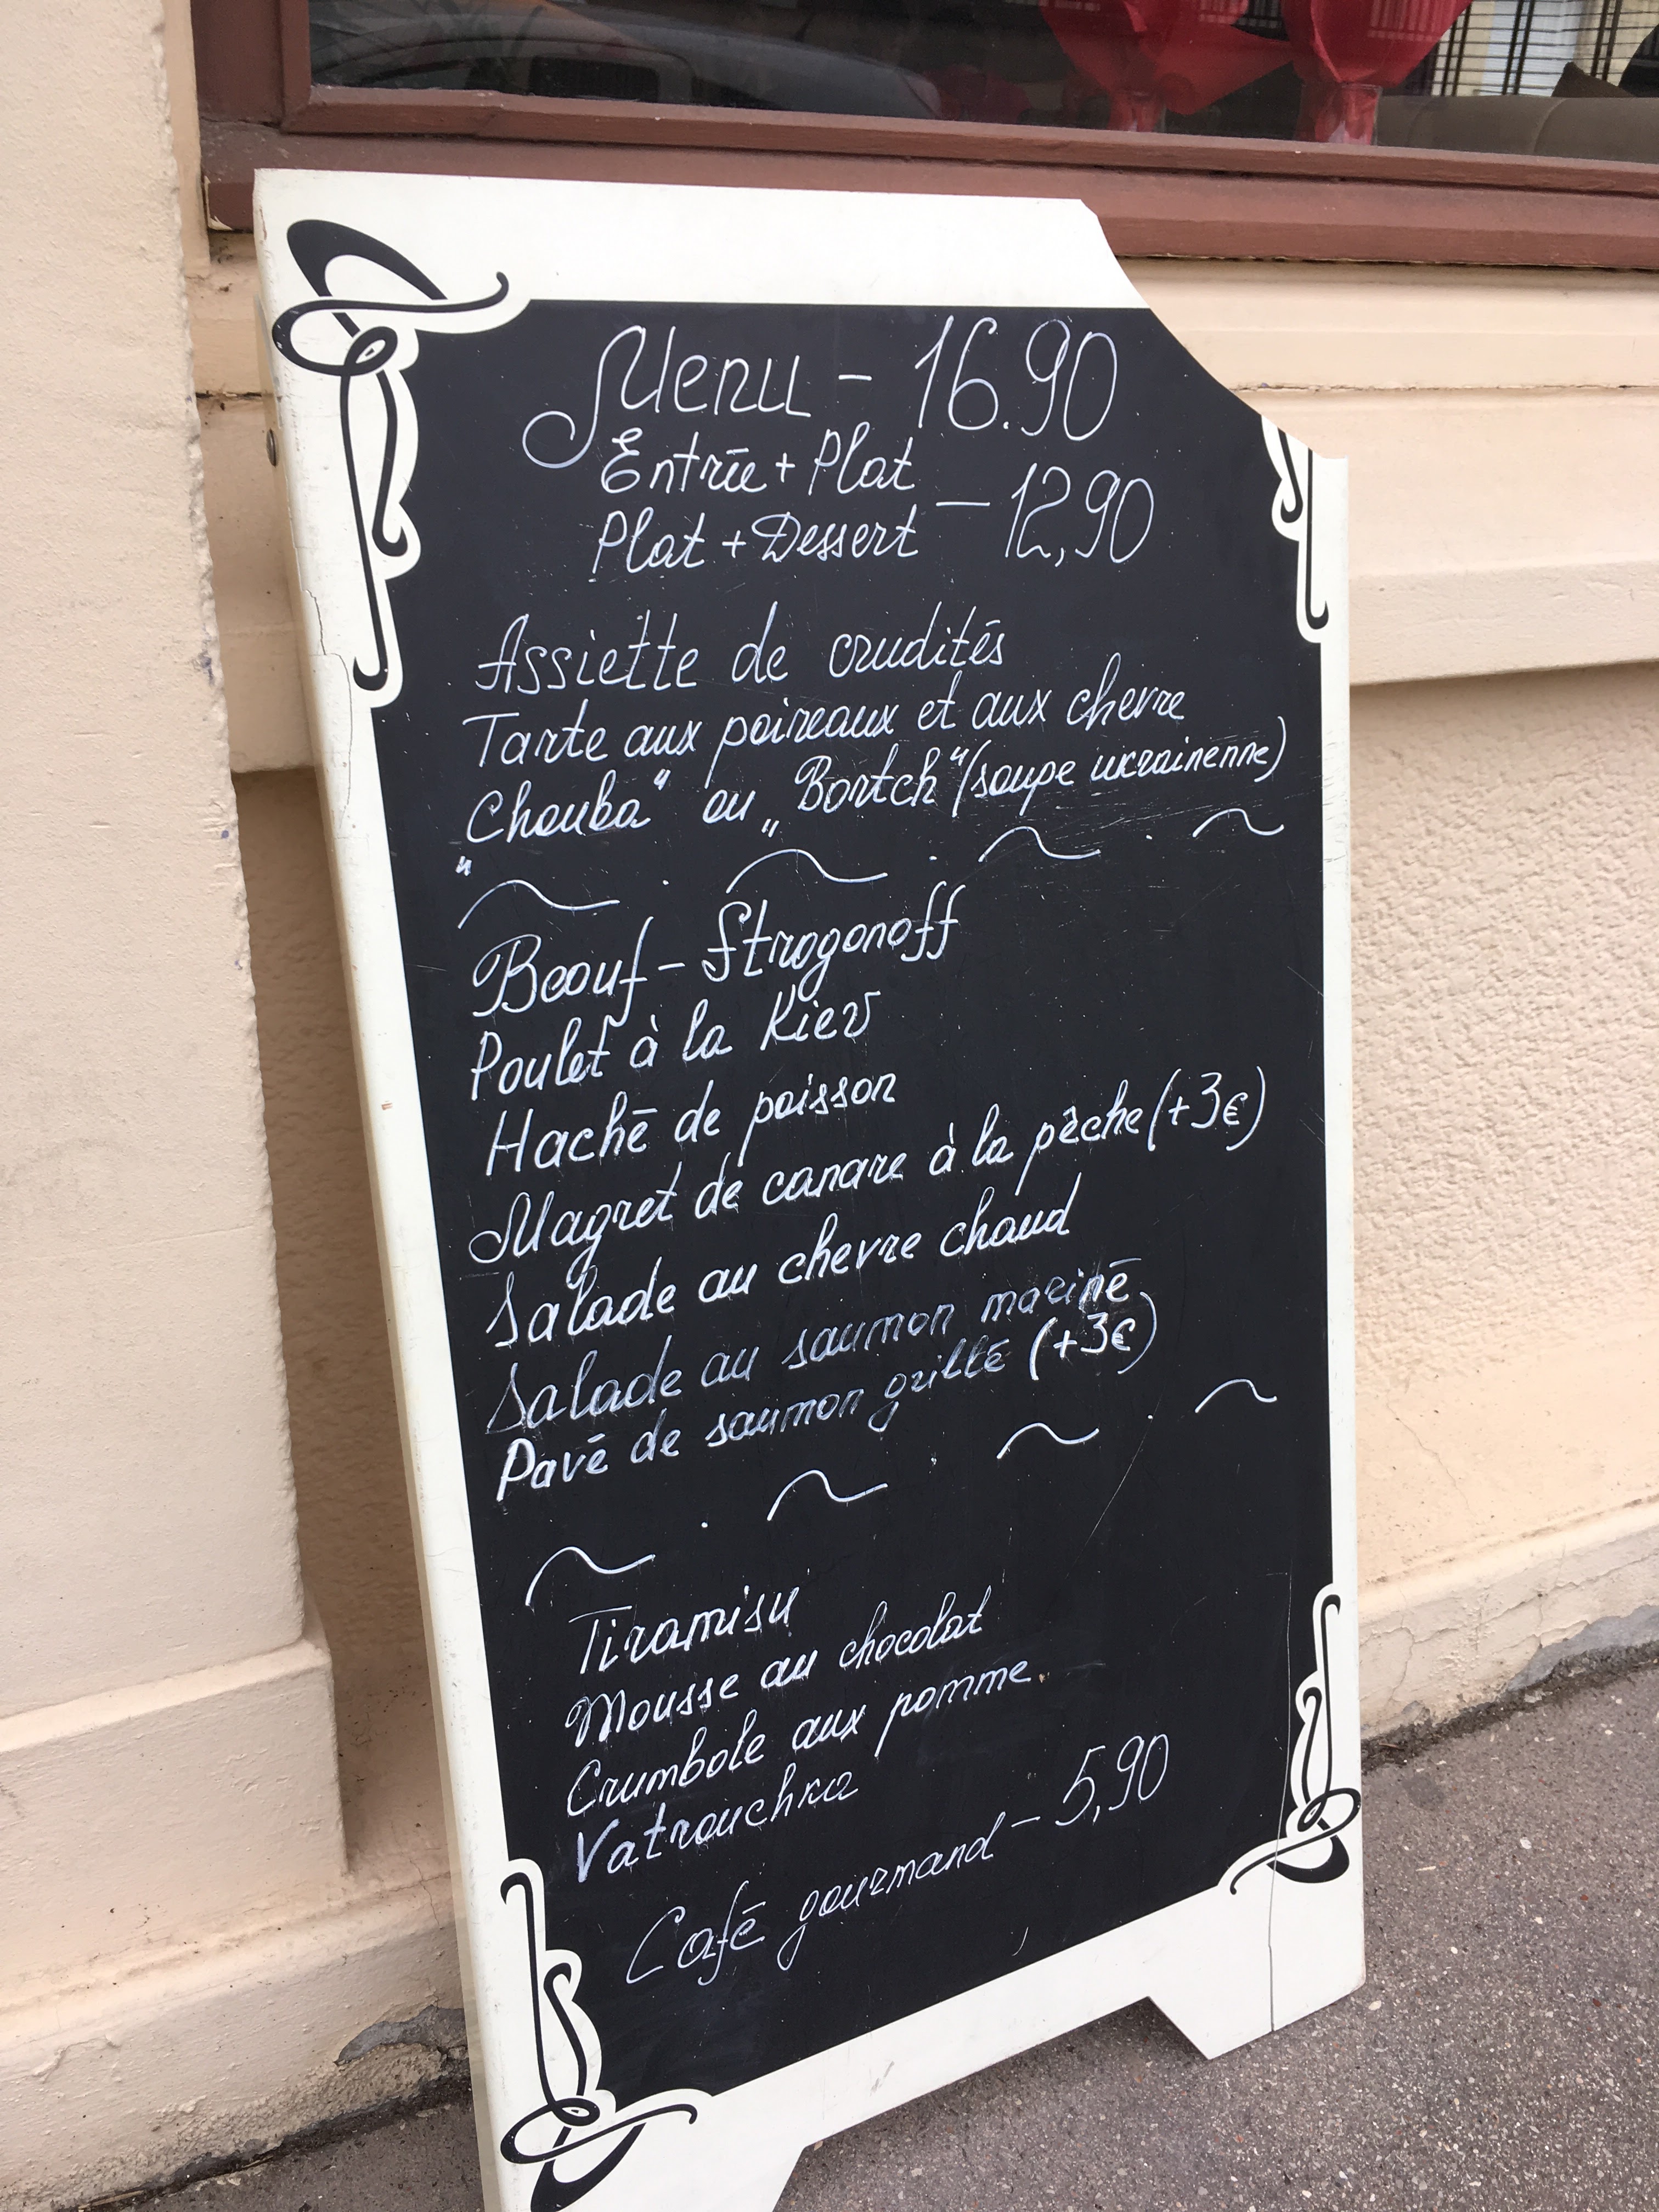 Menu - 16.90
Entrée + Plat
Plat + Dessert — 12,90
Assiette de crudités
Tarte aux poireaux et aux chevre
"Chouba" ou „Bortch" (soupe ukrainenne)
Beouf - Strogonoff
Poulet à la Kiev
Haché de poisson
Magret de canare à la pèche (+3€)
Salade au chevre chaud
Salade au saumon mariné
Pavé de saumon grillé (+3€)
Tiramisu
Mousse au chocolat
Crumbole aux pomme
Vatrouchka
Café gourmand - 5,90